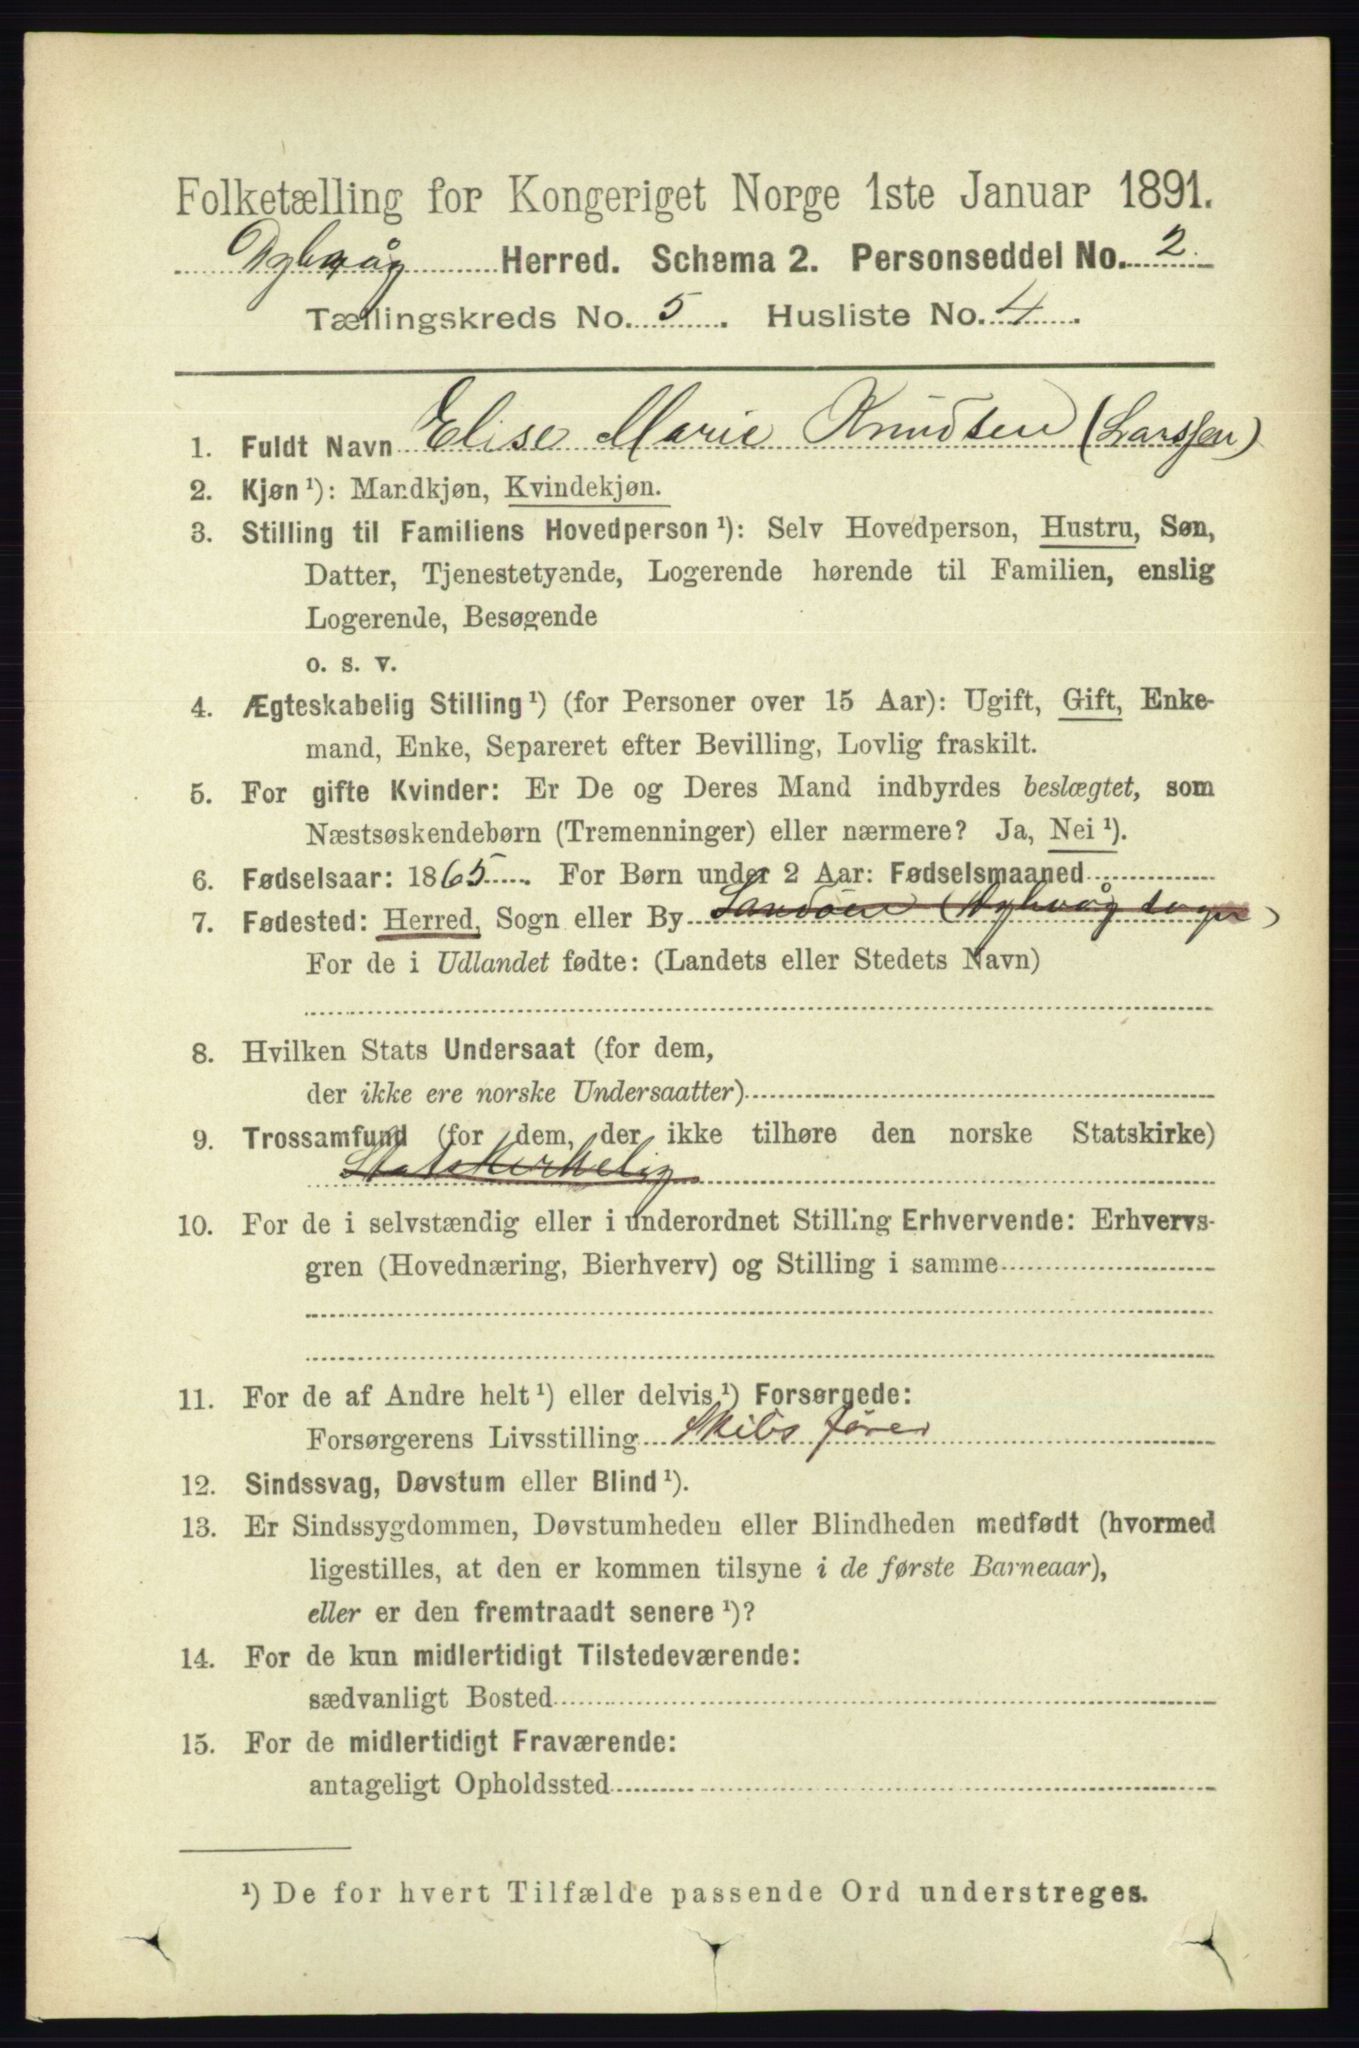 Folketælling for Kongeriget Norge 1ste Januar 1891.
Dybvåg Herred. Schema 2. Personseddel No. 2
Tællingskreds No. 5. Husliste No. 4.
1. Fuldt Navn Elise Marie Knudsen (Larssen)
2. Kjøn¹): Mandkjøn, Kvindekjøn.
3. Stilling til Familiens Hovedperson¹): Selv Hovedperson, Hustru, Søn,
Datter, Tjenestetyende, Logerende hørende til Familien, enslig
Logerende, Besøgende
o. s. v.
4. Ægteskabelig Stilling¹) (for Personer over 15 Aar): Ugift, Gift, Enke-
mand, Enke, Separeret efter Bevilling, Lovlig fraskilt.
5. For gifte Kvinder: Er De og Deres Mand indbyrdes beslægtet, som
Næstsøskendebørn (Tremenninger) eller nærmere? Ja, Nei¹).
6. Fødselsaar: 1865. For Børn under 2 Aar: Fødselsmaaned
7. Fødested: Herred, Sogn eller By Sandøen (Dybvåg sogn)
For de i Udlandet fødte: (Landets eller Stedets Navn)
8. Hvilken Stats Undersaat (for dem,
der ikke ere norske Undersaatter)
9. Trossamfund (for dem, der ikke tilhøre den norske Statskirke)
Statskirkelig
10. For de i selvstændig eller i underordnet Stilling Erhvervende: Erhvervs-
gren (Hovednæring, Bierhverv) og Stilling i samme
11. For de af Andre helt¹) eller delvis¹) Forsørgede:
Forsørgerens Livsstilling Skibsfører
12. Sindssvag, Døvstum eller Blind¹).
13. Er Sindssygdommen, Døvstumheden eller Blindheden medfødt (hvormed
ligestilles, at den er kommen tilsyne i de første Barneaar),
eller er den fremtraadt senere¹)?
14. For de kun midlertidigt Tilstedeværende:
sædvanligt Bosted
15. For de midlertidigt Fraværende:
antageligt Opholdssted
¹) De for hvert Tilfælde passende Ord understreges.